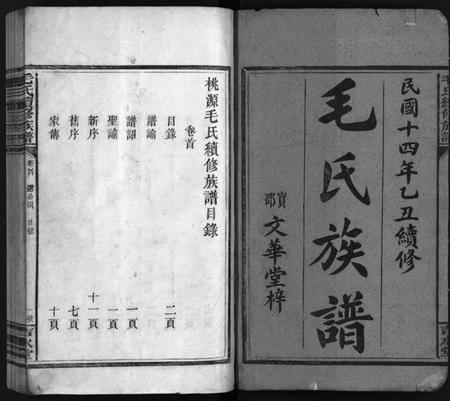 民國十四年乙丑續修
毛氏族譜
寶郡文華堂梓
毛氏續修族譜
桃源毛氏續修族譜目錄
卷首
目錄 二頁
譜諭
譜詔 一頁
聖諭 一頁
新序 十一頁
舊序 七頁
家傳 十頁
毛氏續修族譜
卷首
目錄